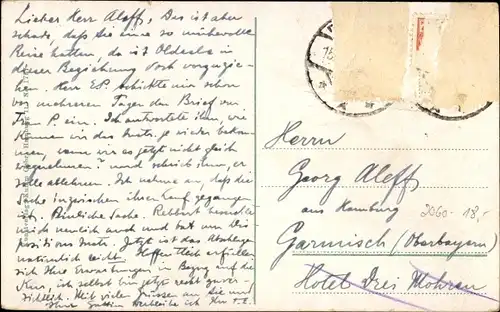 Lieber Herr Aleff, Das ist aber
schade, daß Sie eine so mühevolle
Reise hatten, da ist Oldesloe in
dieser Beziehung doch vorzuzie-
hen. Herr schickte mir schon
vor mehreren Tagen den Brief von
P. ein. Ich antwortete ihm, wie
können wir das Instr. je wieder bekom-
men, wenn wir es jetzt nicht gleich
wegnehmen? und schrieb ihm, er
solle ablehnen. Ich nehme an, daß die
Sache inzwischen ihren Lauf gegangen
ist. Peinliche Sache.
mich neulich auch und bat um Dis-
positions Instr. Jetzt ist das Absehen
natürlich leicht. Hoffentlich erfüllen
sich Ihre Erwartungen in Bezug auf die
Kur, ich selbst bin jetzt recht zuver-
sichtlich. Mit vielen Grüssen an Sie und
Ihre Gattin verbleibe ich Ihr
Herrn
Georg Aleff
aus Hamburg
3060- 18,-
Garmisch (Oberbayern)
Hotel Drei Mohren